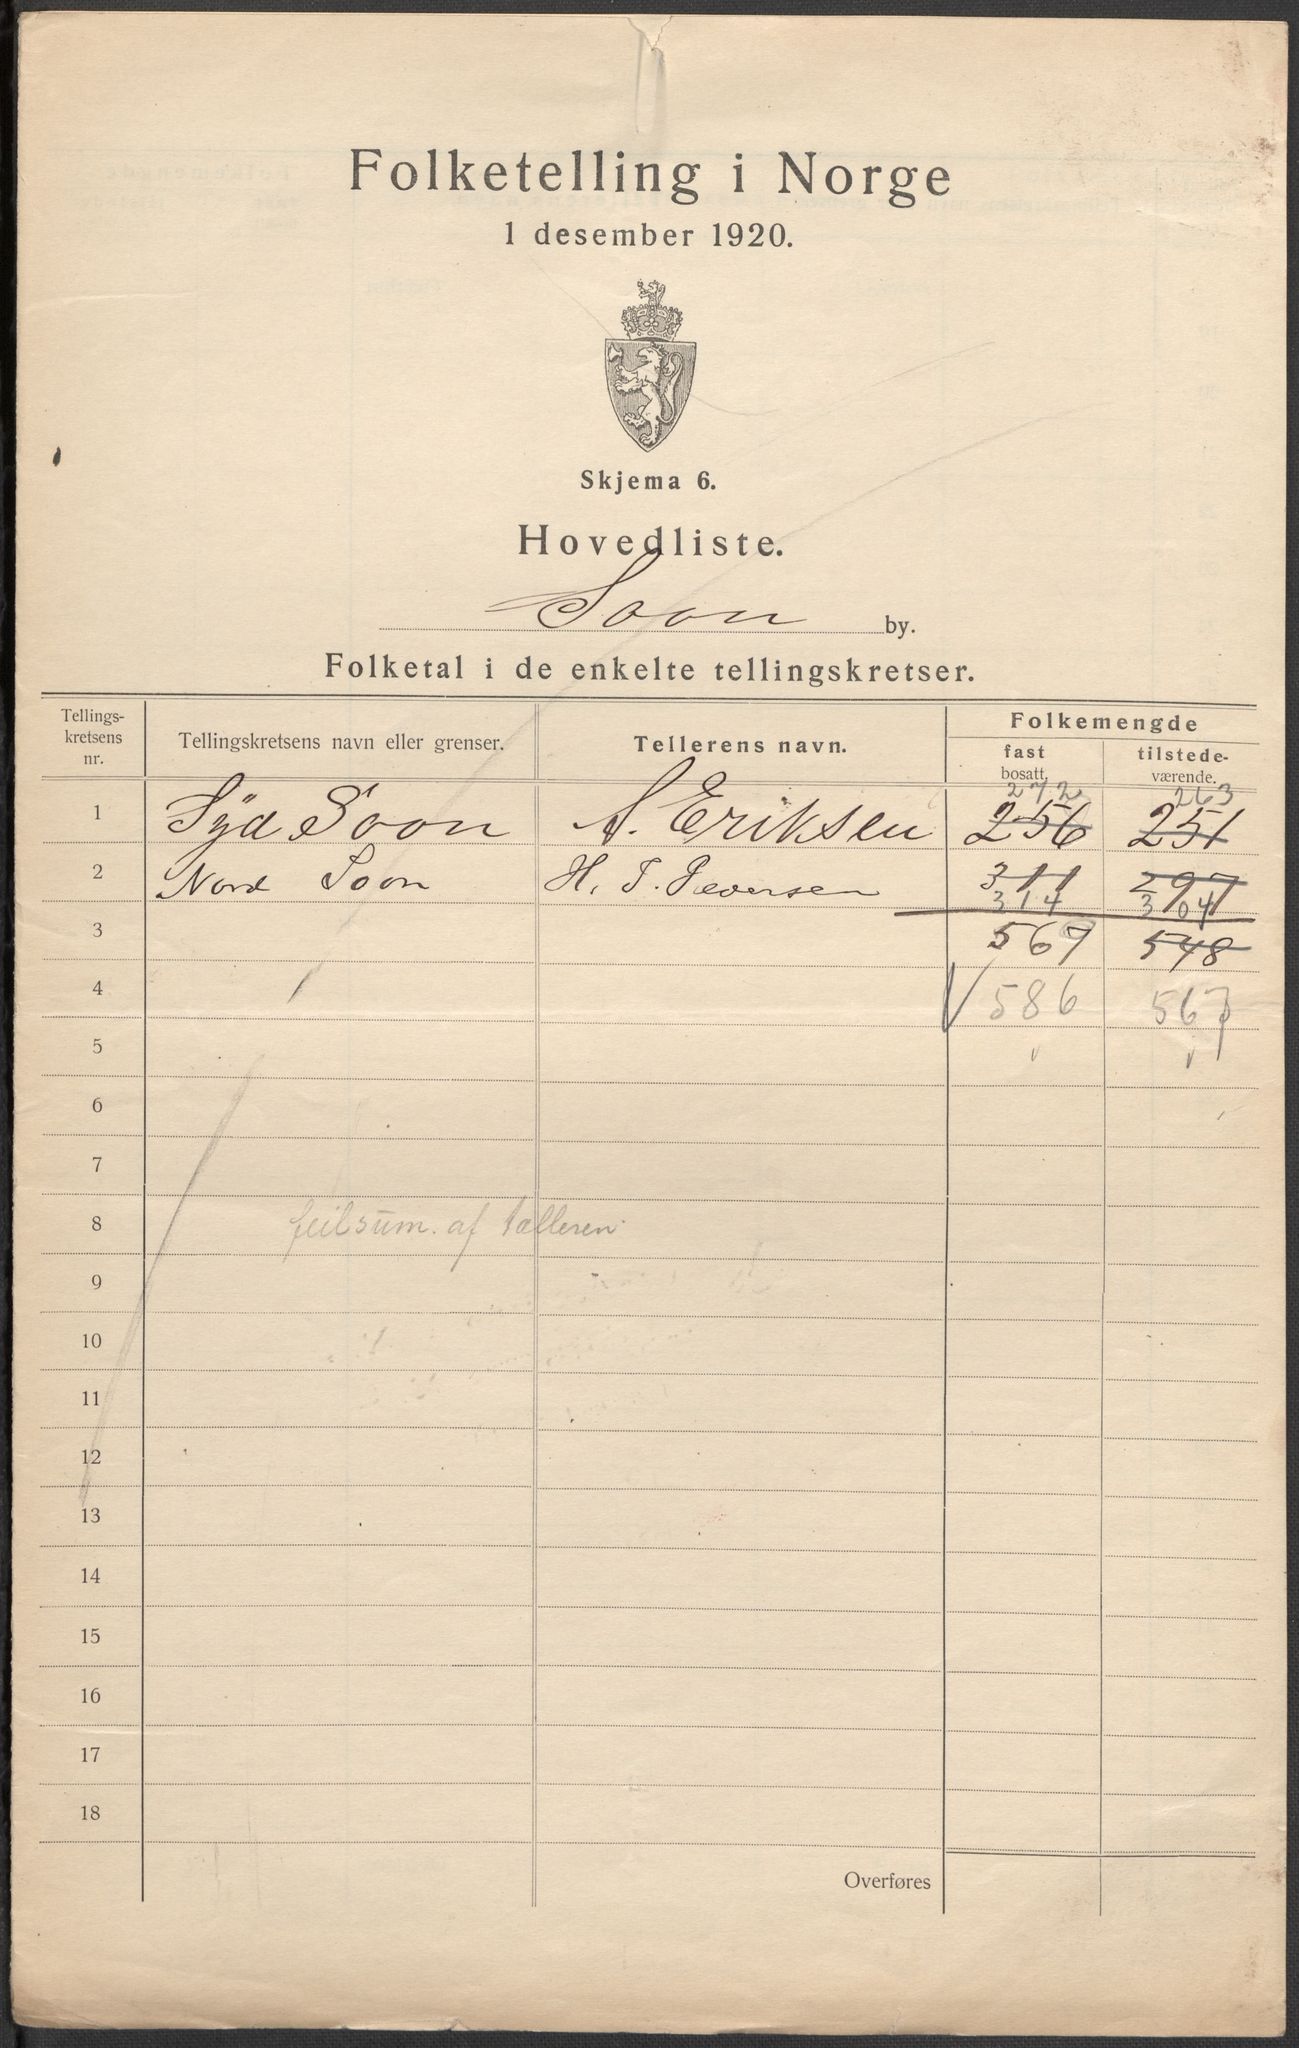 Folketelling i Norge
1 desember 1920.
Skjema 6.
Hovedliste.
Soon by.
Folketal i de enkelte tellingskretser.
Tellings-kretsens nr. Tellingskretsens navn eller grenser. Tellerens navn. Folkemengde
fast bosatt. tilstede-værende.
272 263
1 Syd Soon A. Eriksen 256 251
2 Nord Soon H. T. Pedersen 311 297
314 304
3 567 548
4 586 567
5
6
7
8 feilsum. af tælleren
9
10
11
12
13
14
15
16
17
18
Overføres